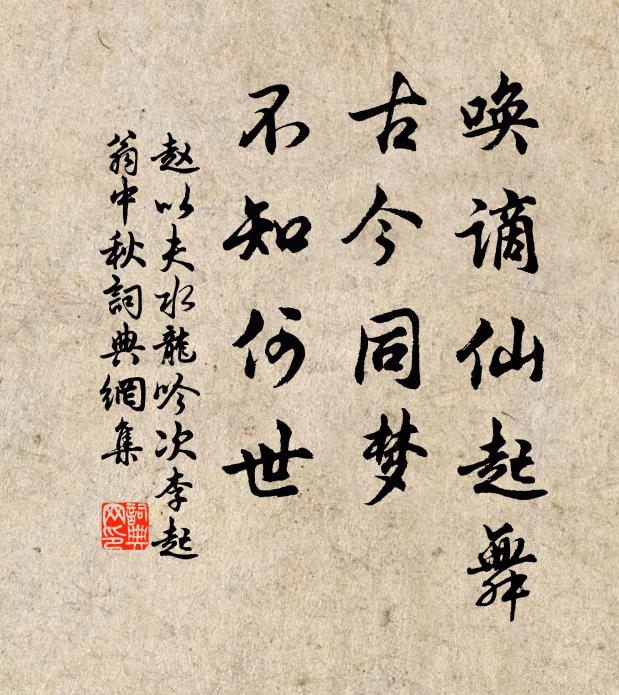 唤谪仙起舞
古今同梦
不知何世
赵以夫水龍吟次李起
翁中秋詞典網集
詞典
网印